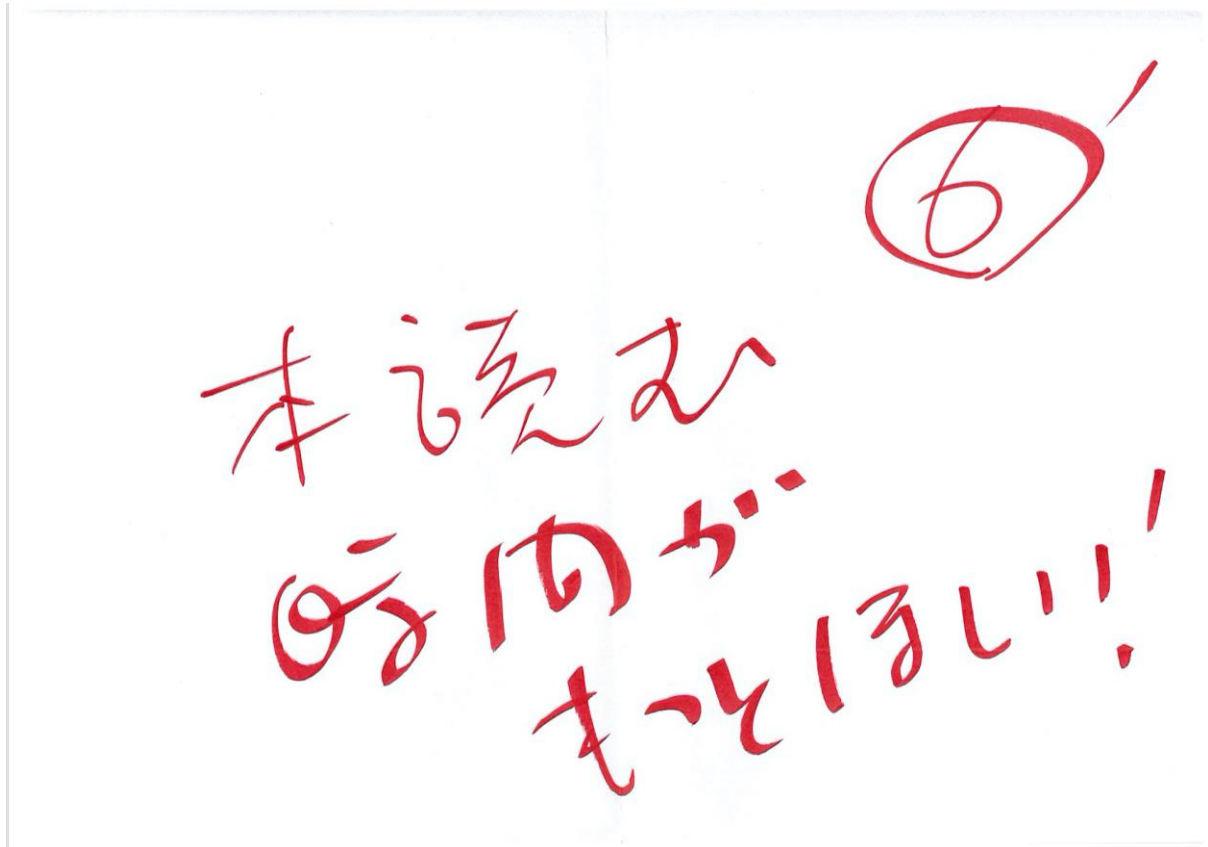 ⑥'
本読む
時間が
もっとほしい!